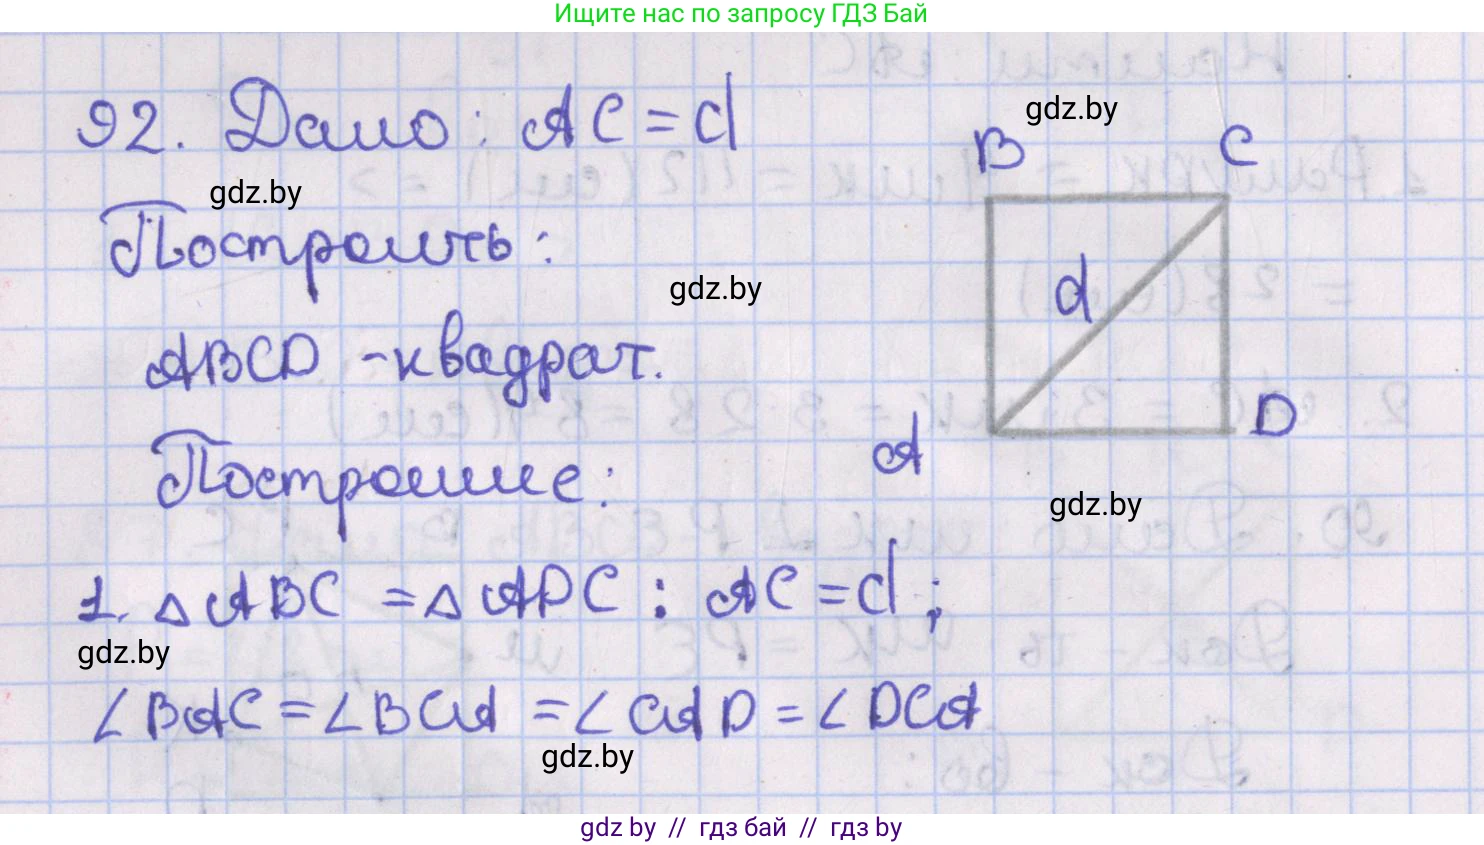 Ищите нас по запросу ГДЗ Бай
92. Дано: AC = d
gdz.by
B C
gdz.by
Построить:
gdz.by
d
ABCD - квадрат.
A D
Построение:
gdz.by
1. △ ABC = △ ADC : AC = d ;
gdz.by
∠ BAC = ∠ BCA = ∠ CAD = ∠ DCA
gdz.by
gdz by // гдз бай // гдз by